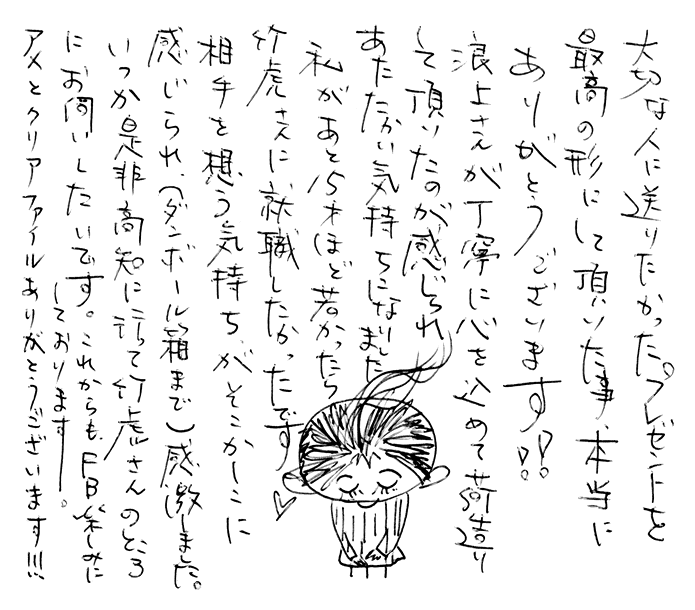 大切な人に送りたかった。プレゼントを
最高の形にして頂いた事、本当に
ありがとうございます!!
浪上さんが丁寧に心を込めて荷造り
して頂いたのが感じられ
あたたかい気持ちになりました
私があと15才ほど若かったら
竹虎さんに就職したかったです
相手を想う気持ち、がそこかしこに
感じられ、(ダンボール箱まで)感激しました。
いつか是非高知に行って竹虎さんのところ
にお伺いしたいです。これからもFB楽しみに
しております—。
アメとクリアファイルありがとうございます!!!